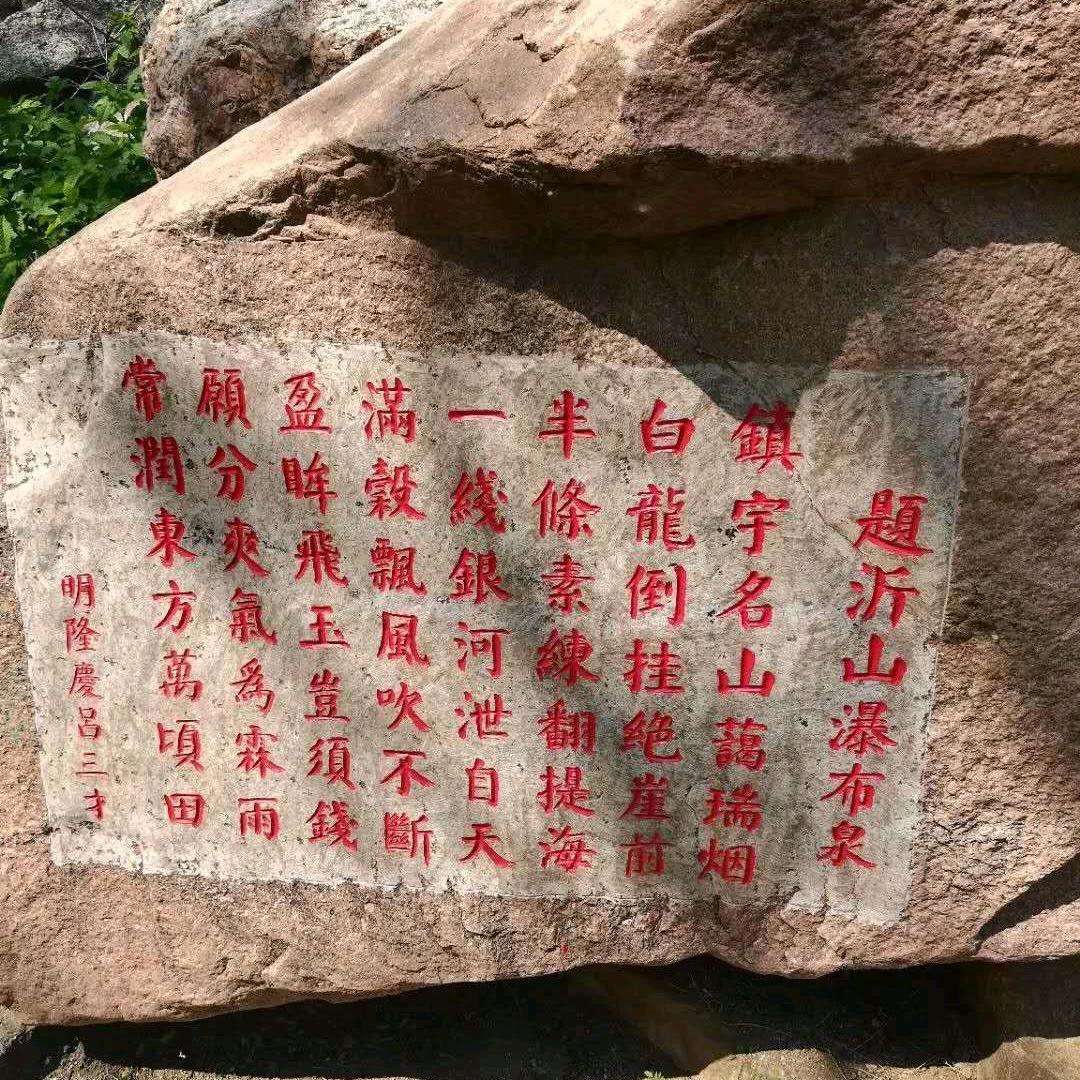 題沂山瀑布泉
鎮宇名山藹瑞烟
白龍倒挂絶崖前
半條素練翻提海
一綫銀河泄自天
滿穀飄風吹不斷
盈眸飛玉豈須錢
願分爽氣爲霖雨
常潤東方萬頃田
明隆慶呂三才